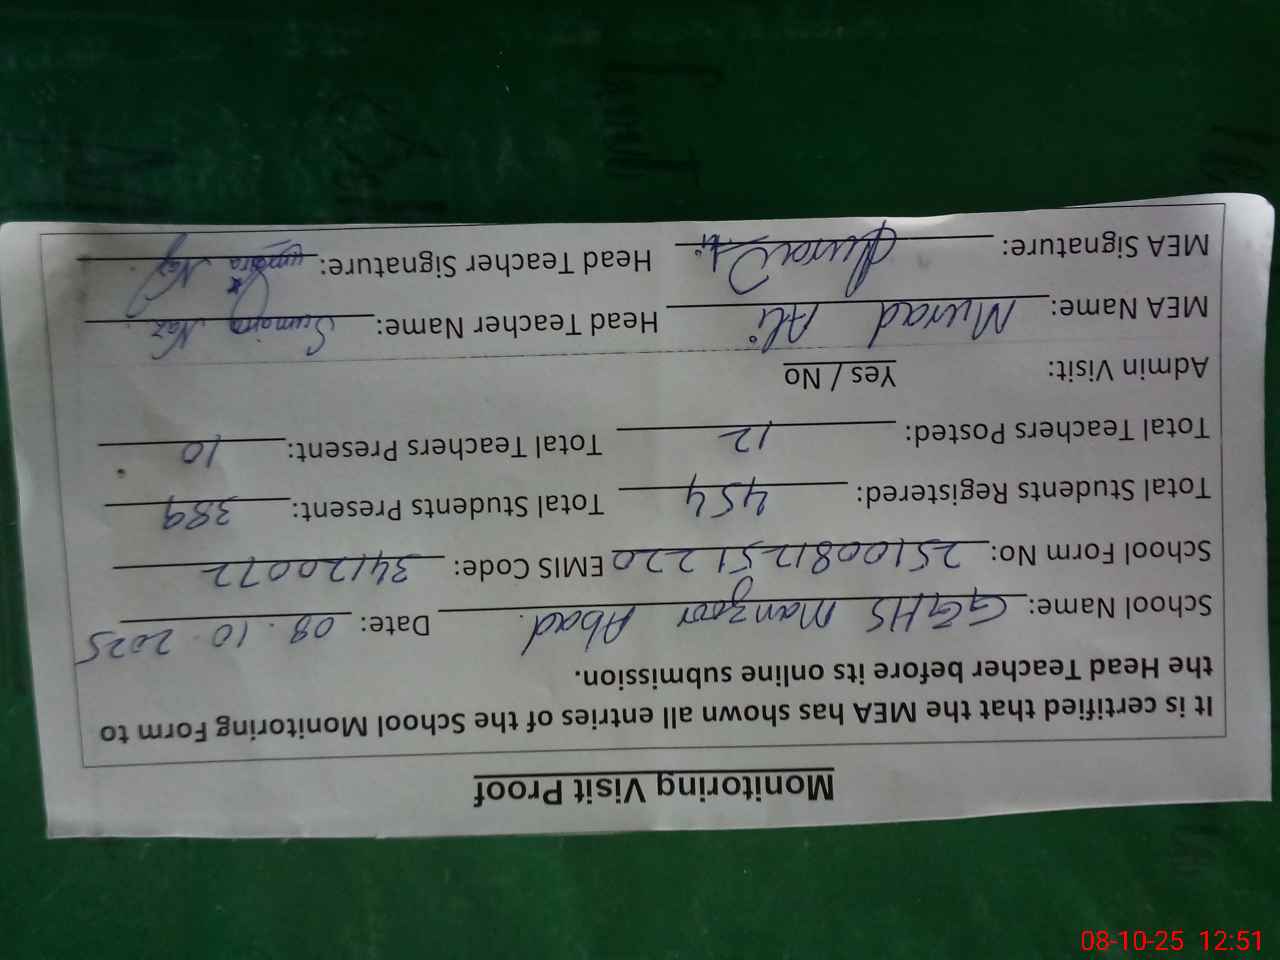 Monitoring Visit Proof
It is certified that the MEA has shown all entries of the School Monitoring Form to
the Head Teacher before its online submission.
School Name: GGHS Manzoor Abad. Date: 08.10.2025
School Form No: 2510081251220 EMIS Code: 34120072
Total Students Registered: 454 Total Students Present: 389
Total Teachers Posted: 12 Total Teachers Present: 10
Admin Visit: Yes / No
MEA Name: Murad Ali Head Teacher Name: Sumaira Naz
MEA Signature: Murad Ali Head Teacher Signature: Naz
08-10-25 12:51